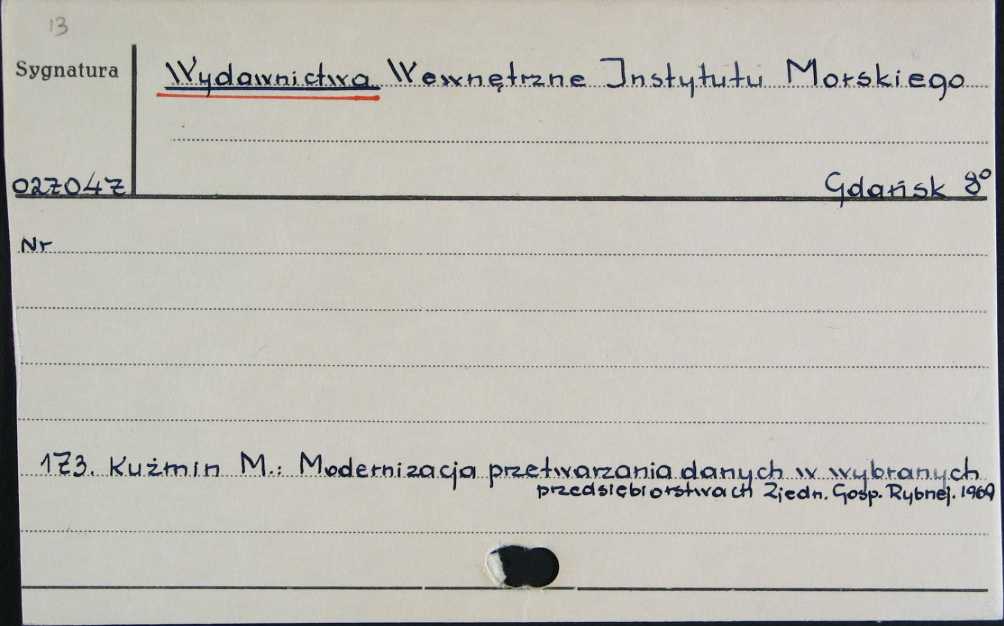 13
Sygnatura
Wydawnictwa Wewnętrzne Instytutu Morskiego
027047
Gdańsk 8°
Nr
173. Kuźmin M.: Modernizacja przetwarzania danych w wybranych
przedsiębiorstwach Zjedn. Gosp. Rybnej. 1969